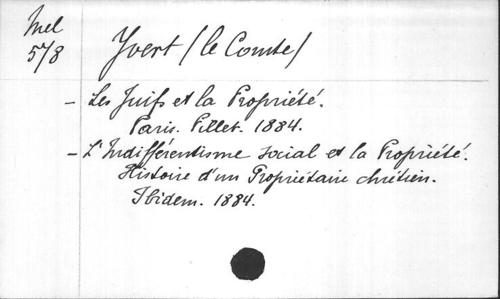 Mel
5/8
Yvert (le Comte)
- Les Juifs et la Propriété.
Paris. Pillet. 1884.
- L'Indifférentisme social et la Propriété.
Histoire d'un Propriétaire chrétien.
Ibidem. 1884.